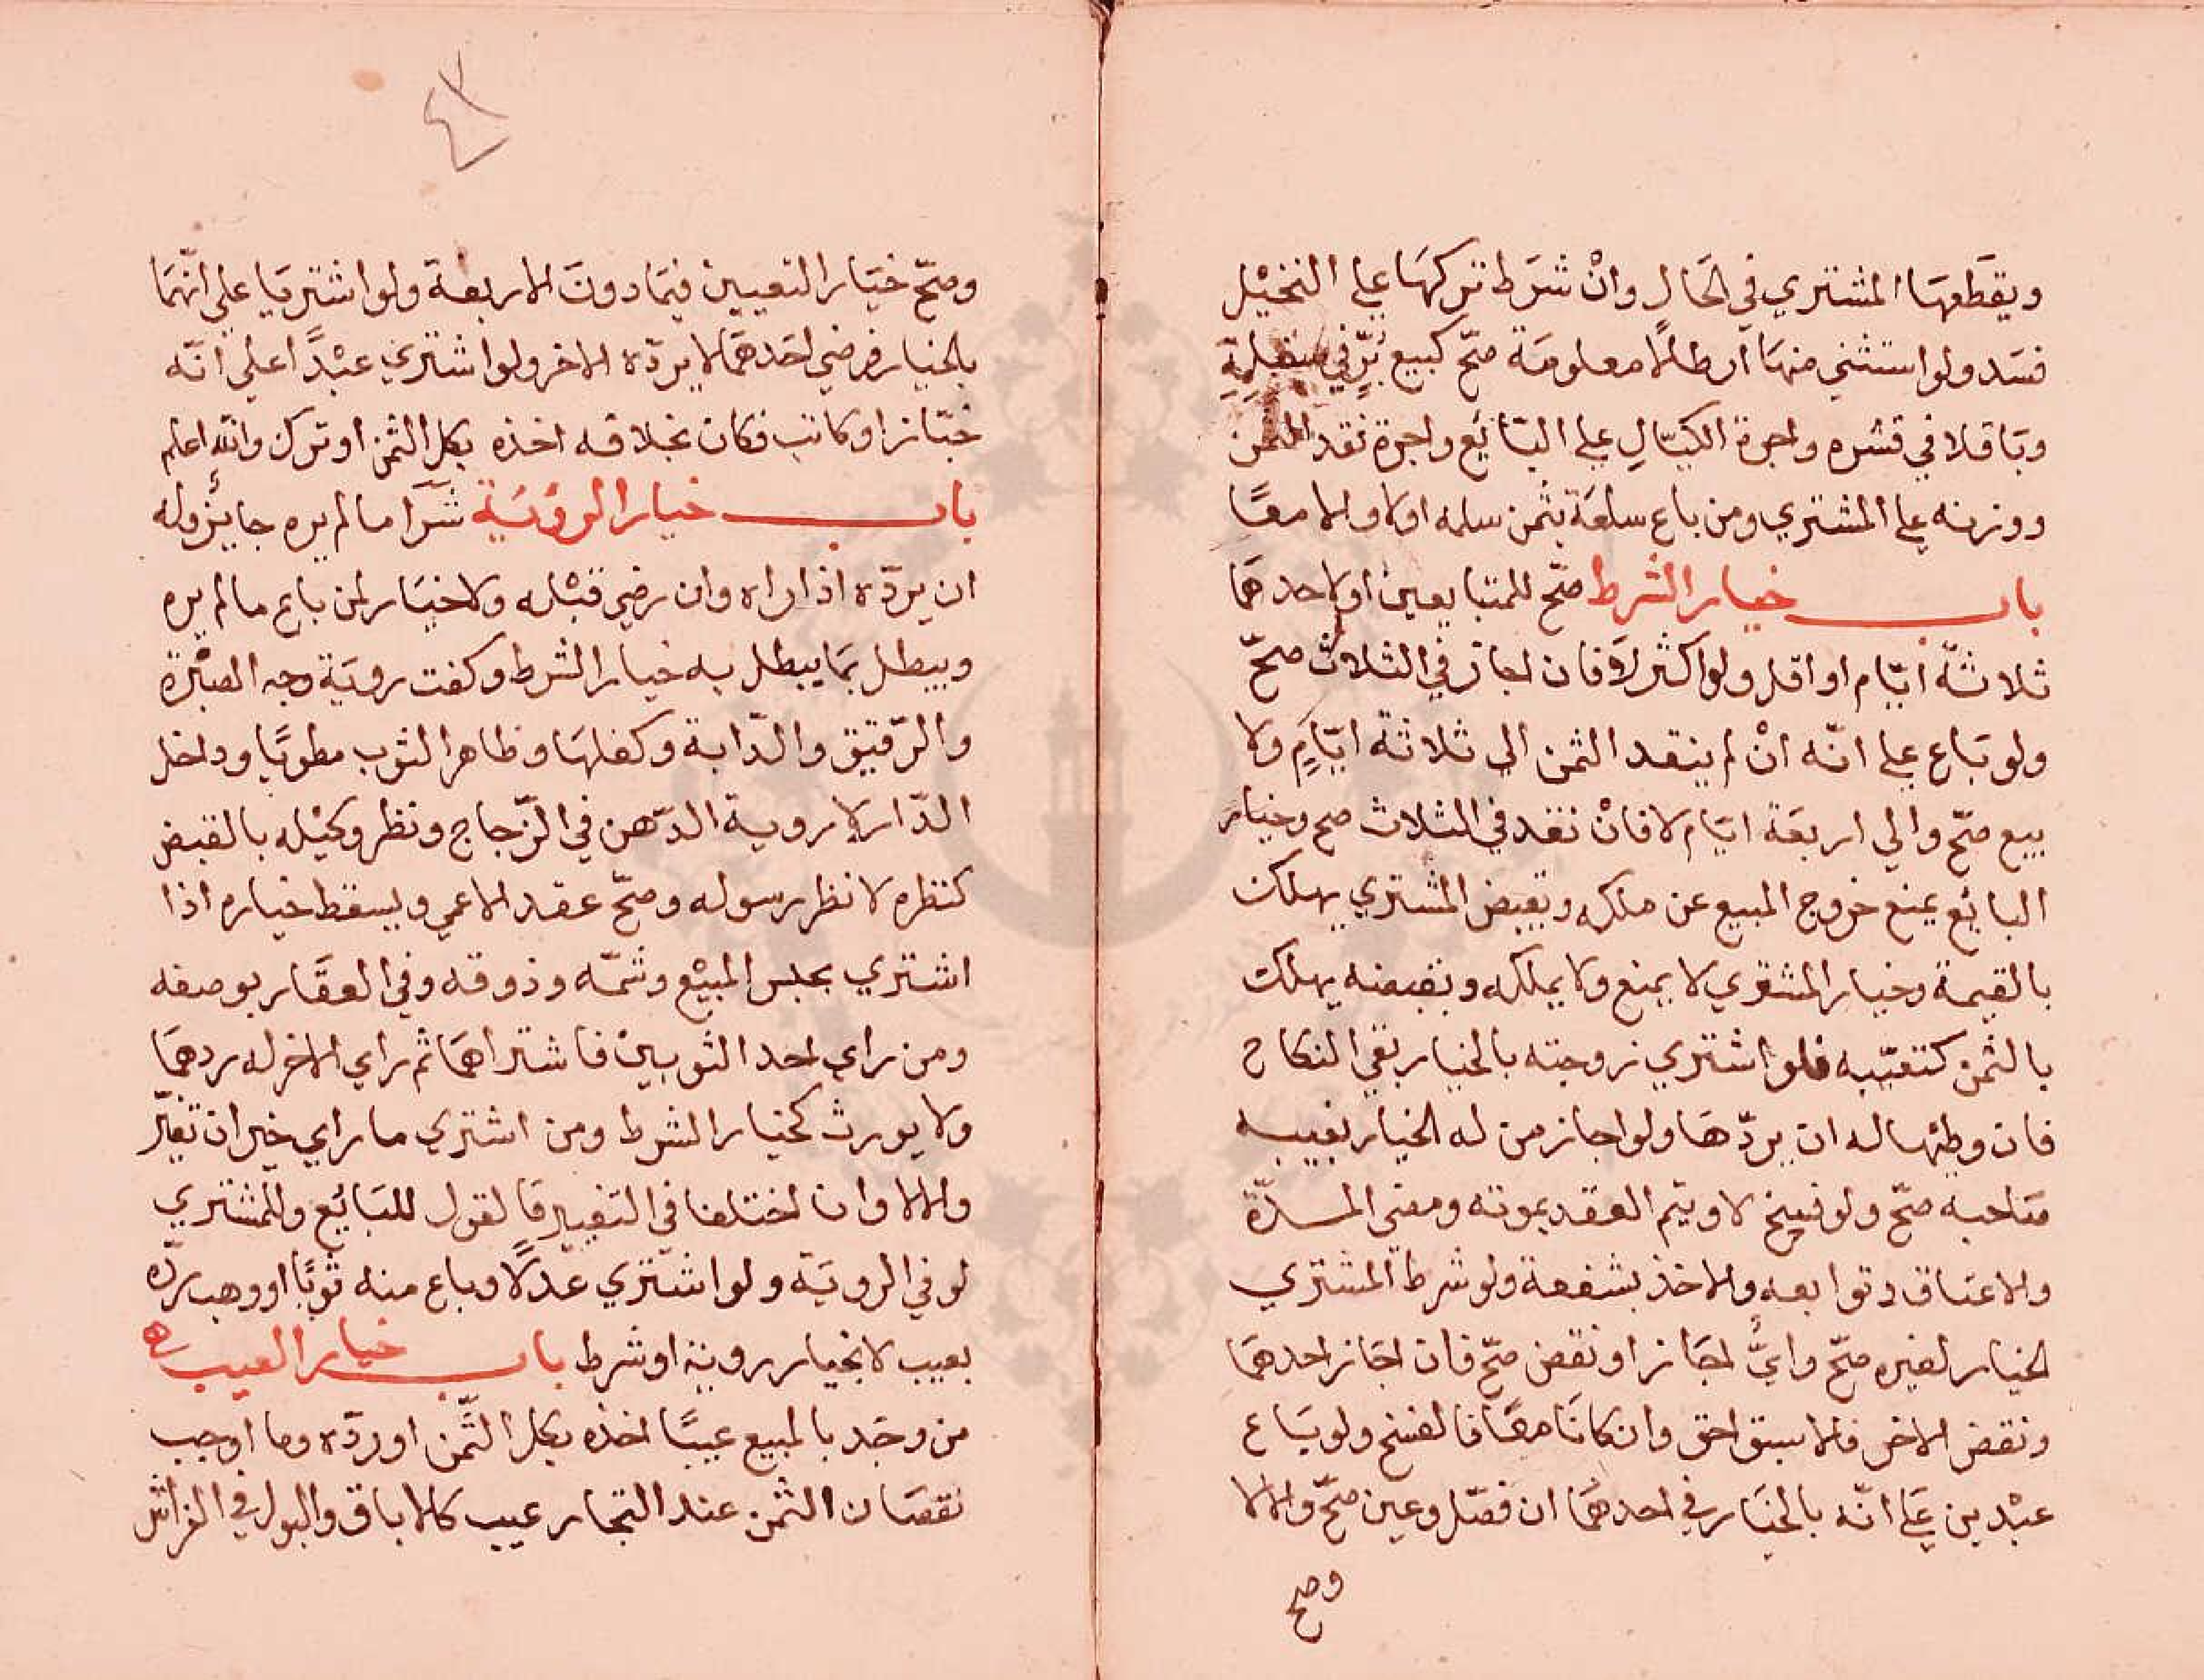 ويقطعها المشتري في الحال وانْ شرط تركها علي النخيل
فسد ولو استثني منها ارطالًا معلومة صحّ كبيع بُرٍّ في سنبله
وباقلا في قشره واجرة الكيّالِ علي البائع واجرة نقد الثمن
ووزنه علي المشتري ومن باع سلعة بثمن سلمه اولا والا معًا
باب خيار الشرط صحّ للمتبايعين او لاحدهما
ثلاثة ايّام او اقل ولو اكثر لا فان اجاز في الثلاث صحّ
ولو باع علي انّه انْ لم ينقد الثمن الي ثلاثة ايّامٍ ولا
بيع صحّ والي اربعة ايام لا فانْ نقد في الثلاث صح وخيار
البائع يمنع خروج المبيع عن ملكه وبقبض المشتري يهلك
بالقيمة وخيار المشتري لا يمنع ولا يملكه وبقبضه يهلك
بالثمن كتعيّبه فلو اشتري زوجته بالخيار بقي النكاح
فان وطئها له ان يردّها ولو اجاز من له الخيار بغيبه
صاحبه صحّ ولو فسخ لا ويتم العقد بموته ومضي المدّة
والاعتاق وتوابعه والاخذ بشفعة ولو شرط المشتري
الخيار لغيره صحّ وايُّ اجاز او نقض صحّ فان اجاز احدهما
ونقض الاخر فالاسبق احق وان كانا معًا فالفسخ ولو باع
عبْدين علي انّه بالخيار في احدهما ان فصّل وعين صحّ والالا
وصح
وصحّ خيار التعيين فيما دون الاربعة ولو اشتريا علي انّهما
بالخيار فرضي احدهما لا يردّه الاخر ولو اشتري عبْدًا علي انّه
خبّاز او كاتب فكان بخلافه اخذه بكل الثمن او ترك والله اعلم
باب خيار الرؤية شرا ما لم يره جايز وله
ان يردّه اذا راه وان رضي قبْله ولا خيار لمن باع ما لم يره
ويبطل بما يبطل به خيار الشرط وكفت روية وجه الصبْرة
والرّقيق والدّابة وكفلها وظاهر الثوب مطويًا وداخل
الدّار لا روية الدّهن في الزّجاج ونظر وكيْله بالقبض
كنظره لا نظر رسوله وصحّ عقد الاعمي ويسقط خياره اذا
اشتري بجس المبيْع وشمّه وذوقه وفي العقّار بوصفه
ومن راي احد الثوبين فاشتراهما ثم راي الاخر له ردهما
ولا يورث كخيار الشرط ومن اشتري ما راي خير ان تغيّر
والالا وان اختلفا في التغيير فالقول للبائع وللمشتري
لو في الروية ولو اشتري عدلًا وباع منه ثوبًا او وهب ردّه
بعيب لا بخيار روية او شرط باب خيار العيب
من وجد بالمبيع عيبًا اخذه بكل الثّمن او ردّه وما اوجب
نقصان الثمن عند التجار عيب كالاباق والبول في الفراش